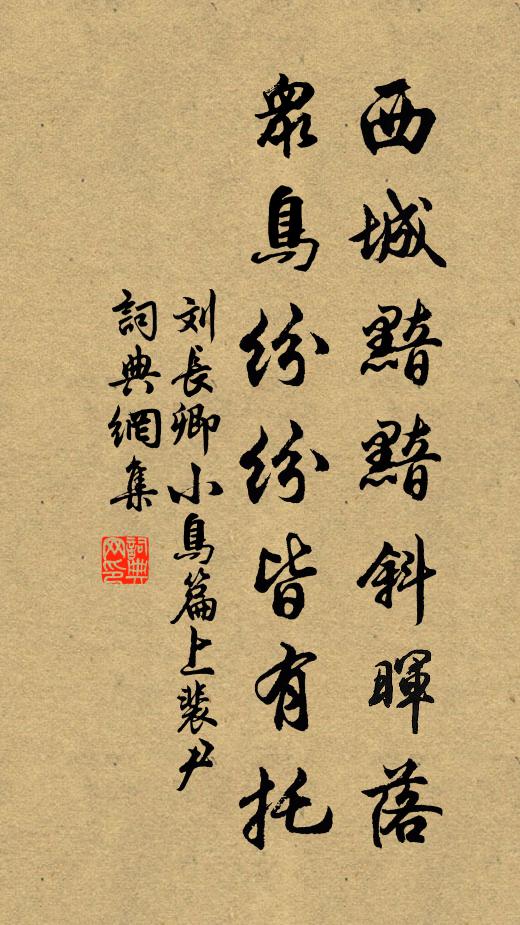 西城黯黯斜暉落
眾鳥紛紛皆有托
刘長卿小鳥篇上裴尹
詞典網集
詞典网印